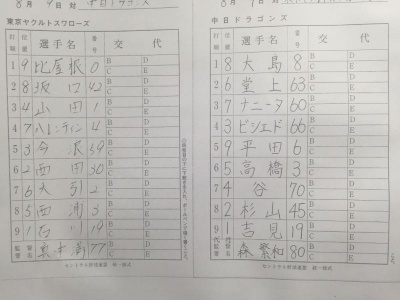 8月9日 対 中日ドラゴンズ
東京ヤクルトスワローズ
打順 位置 選手名 番号 交代
1 9 比屋根 0 B D C E
2 8 坂口 42 B D C E
3 4 山田 1 B D C E
4 7 バレンティン 4 B D C E
5 3 今浪 59 B D C E
6 2 西田 30 B D C E
7 6 大引 2 B D C E
8 5 西浦 3 B D C E
9 1 石川 19 B D C E
監督署名 真中満 77
セントラル野球連盟 統一様式
8月9日 対
中日ドラゴンズ
打順 位置 選手名 番号 交代
1 8 大島 8 B D C E
2 6 堂上 63 B D C E
3 7 ナニータ 60 B D C E
4 3 ビシエド 66 B D C E
5 9 平田 6 B D C E
6 5 高橋 3 B D C E
7 4 谷 70 B D C E
8 2 杉山 45 B D C E
9 1 吉見 19 B D C E
監督署名 森繁和 80
セントラル野球連盟 統一様式